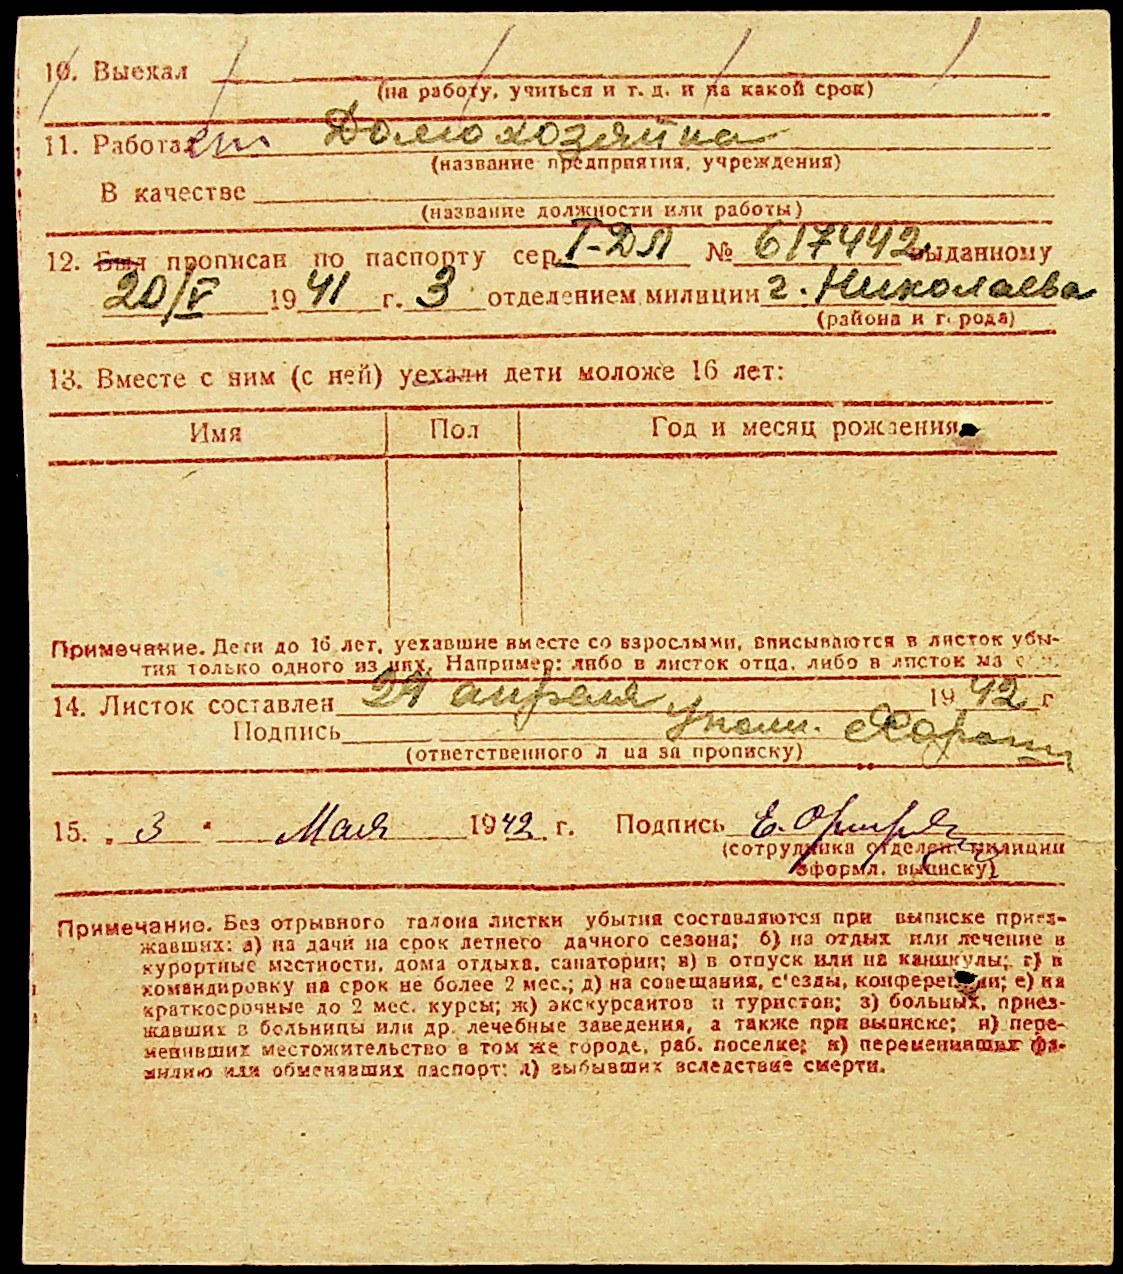 10. Выехал
(на работу, учиться и т. д. и на какой срок)
11. Работает Домохозяйка
(название предприятия, учреждения)
В качестве
(название должности или работы)
12. Был прописан по паспорту сер. I-ДЛ № 617442 выданному
20/V 1941 г. 3 отделением милиции г. Николаева
(района и города)
13. Вместе с ним (с ней) уехали дети моложе 16 лет:
Имя Пол Год и месяц рождения
Примечание. Дети до 16 лет, уехавшие вместе со взрослыми, вписываются в листок убы-
тия только одного из них. Например: либо в листок отца, либо в листок ма
14. Листок составлен 24 апреля 1942 г
Подпись Уполн.
(ответственного лица за прописку)
15. „3" Мая 1942 г. Подпись Е.
(сотрудника отделен. милиции
оформл. выписку)
Примечание. Без отрывного талона листки убытия составляются при выписке приез-
жавших: а) на дачи на срок летнего дачного сезона; б) на отдых или лечение в
курортные местности, дома отдыха, санатории; в) в отпуск или на каникулы; г) в
командировку на срок не более 2 мес.; д) на совещания, с'езды, конференции; е) на
краткосрочные до 2 мес. курсы; ж) экскурсантов и туристов; з) больных, приез-
жавших в больницы или др. лечебные заведения, а также при выписке; и) пере-
менивших местожительство в том же городе, раб. поселке; к) переменивших фа-
милию или обменявших паспорт; л) выбывших вследствие смерти.